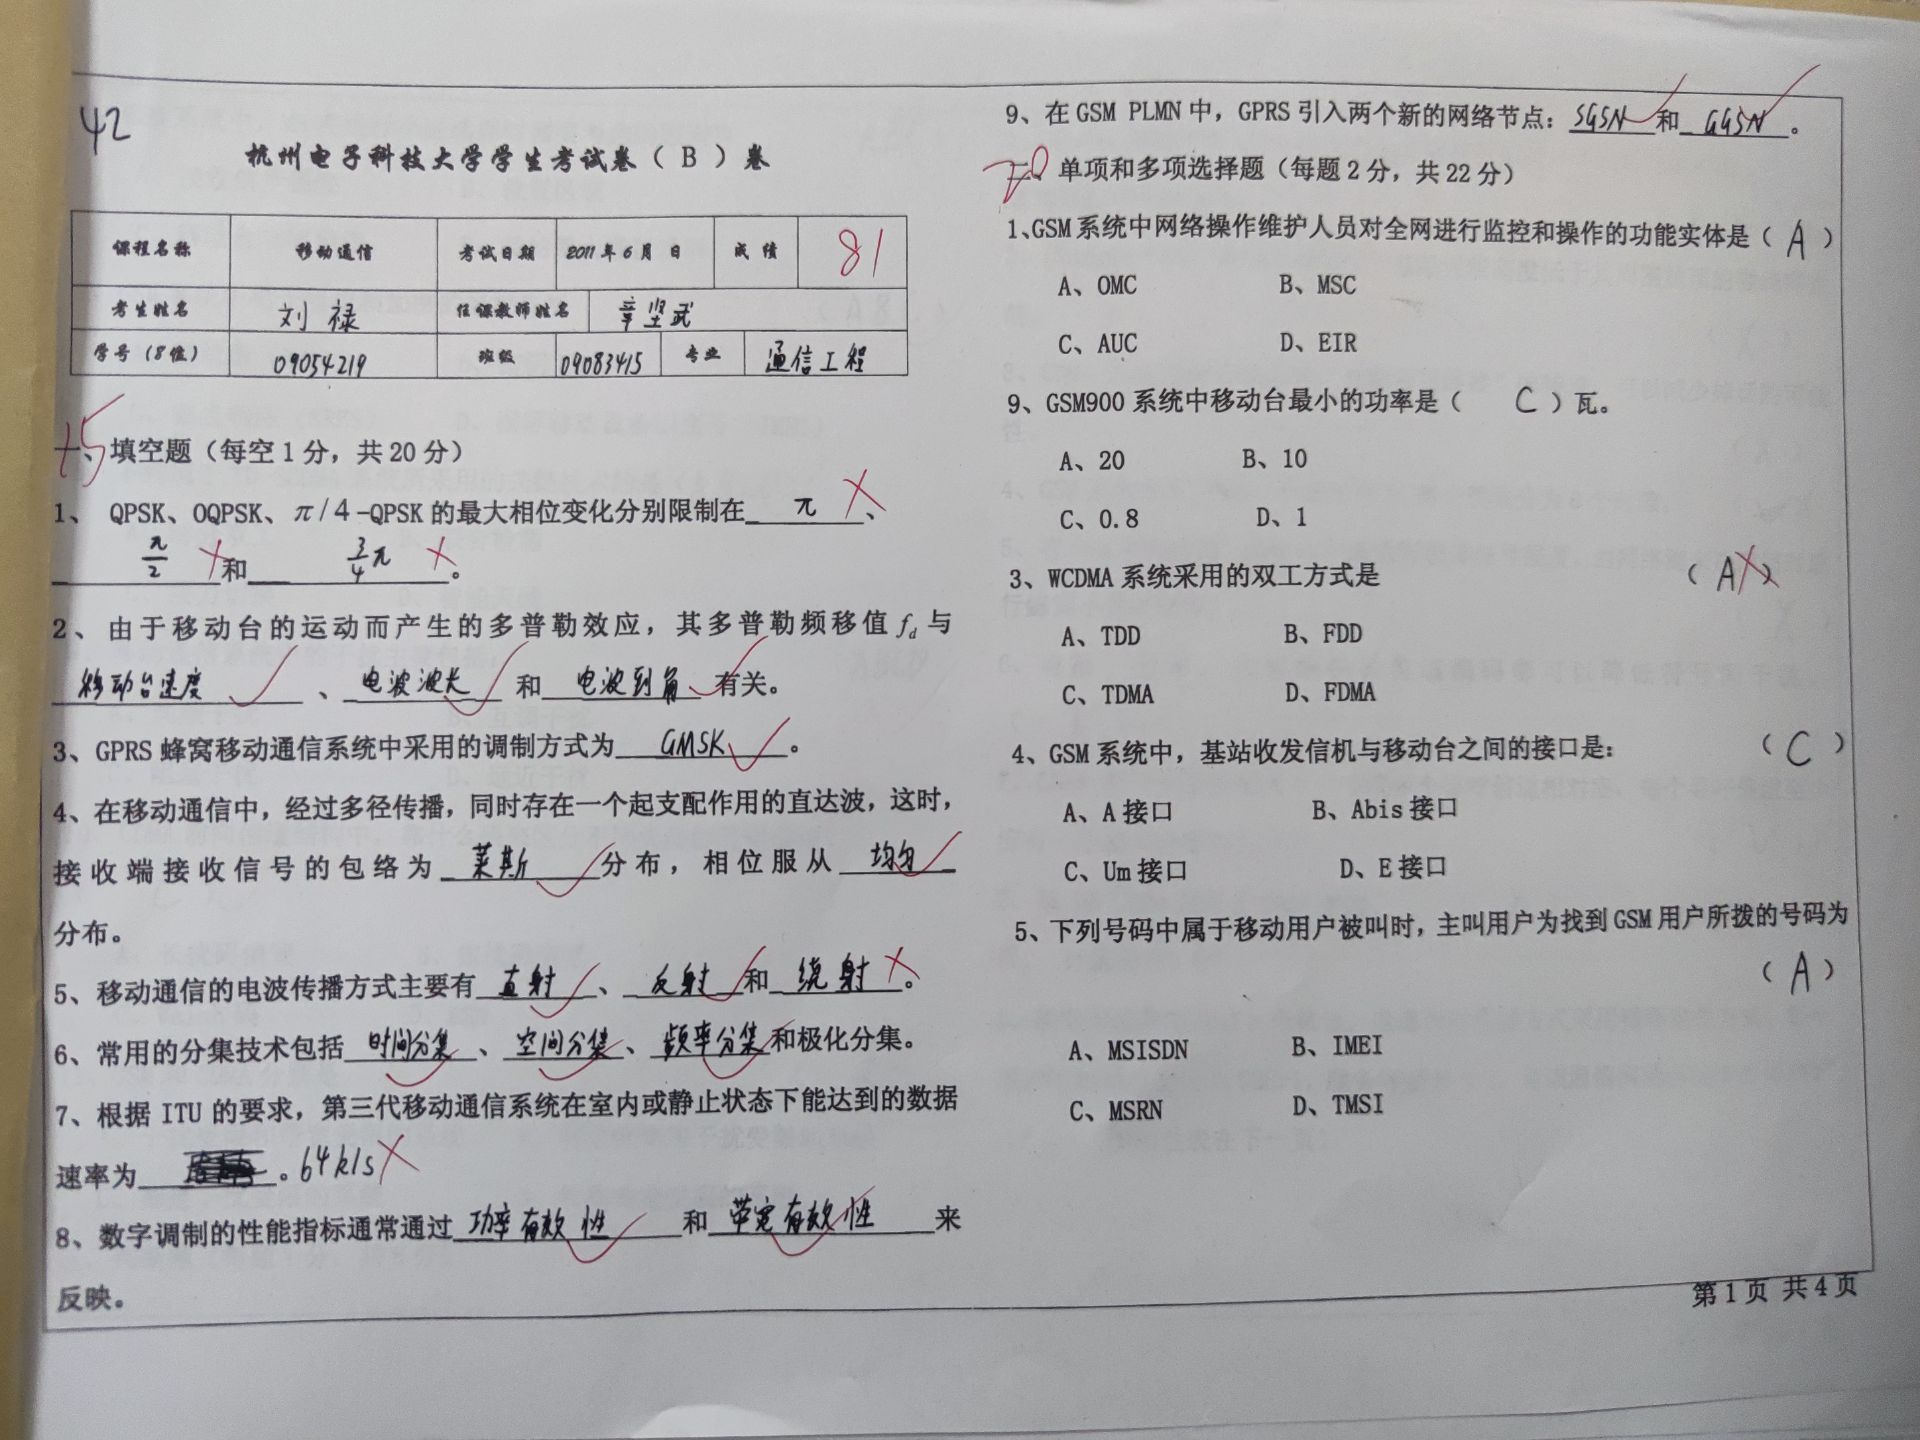 42
杭州电子科技大学学生考试卷（ B ）卷
课程名称 移动通信 考试日期 2011 年 6 月 日 成绩 81
考生姓名 刘禄 任课教师姓名 辛坚武
学号（8位） 09054219 班级 09083415 专业 通信工程
15
一、填空题（每空 1 分，共 20 分）
1、 QPSK、OQPSK、π/4-QPSK 的最大相位变化分别限制在 π 、
π/2 和 3/4 π 。
2、由于移动台的运动而产生的多普勒效应，其多普勒频移值 fd 与
移动台速度 、 电波波长 和 电波到角 有关。
3、GPRS 蜂窝移动通信系统中采用的调制方式为 GMSK 。
4、在移动通信中，经过多径传播，同时存在一个起支配作用的直达波，这时，
接收端接收信号的包络为 莱斯 分布，相位服从 均匀
分布。
5、移动通信的电波传播方式主要有 直射 、 反射 和 绕射 。
6、常用的分集技术包括 时间分集 、 空间分集 、 频率分集 和极化分集。
7、根据 ITU 的要求，第三代移动通信系统在室内或静止状态下能达到的数据
速率为 。64k/s
8、数字调制的性能指标通常通过 功率有效性 和 带宽有效性 来
反映。
9、在 GSM PLMN 中，GPRS 引入两个新的网络节点： SGSN 和 GGSN 。
二、单项和多项选择题（每题 2 分，共 22 分）
1、GSM 系统中网络操作维护人员对全网进行监控和操作的功能实体是（ A ）
A、OMC B、MSC
C、AUC D、EIR
9、GSM900 系统中移动台最小的功率是（ C ）瓦。
A、20 B、10
C、0.8 D、1
3、WCDMA 系统采用的双工方式是 （ A ）
A、TDD B、FDD
C、TDMA D、FDMA
4、GSM 系统中，基站收发信机与移动台之间的接口是： （ C ）
A、A 接口 B、Abis 接口
C、Um 接口 D、E 接口
5、下列号码中属于移动用户被叫时，主叫用户为找到 GSM 用户所拨的号码为
（ A ）
A、MSISDN B、IMEI
C、MSRN D、TMSI
第 1 页 共 4 页